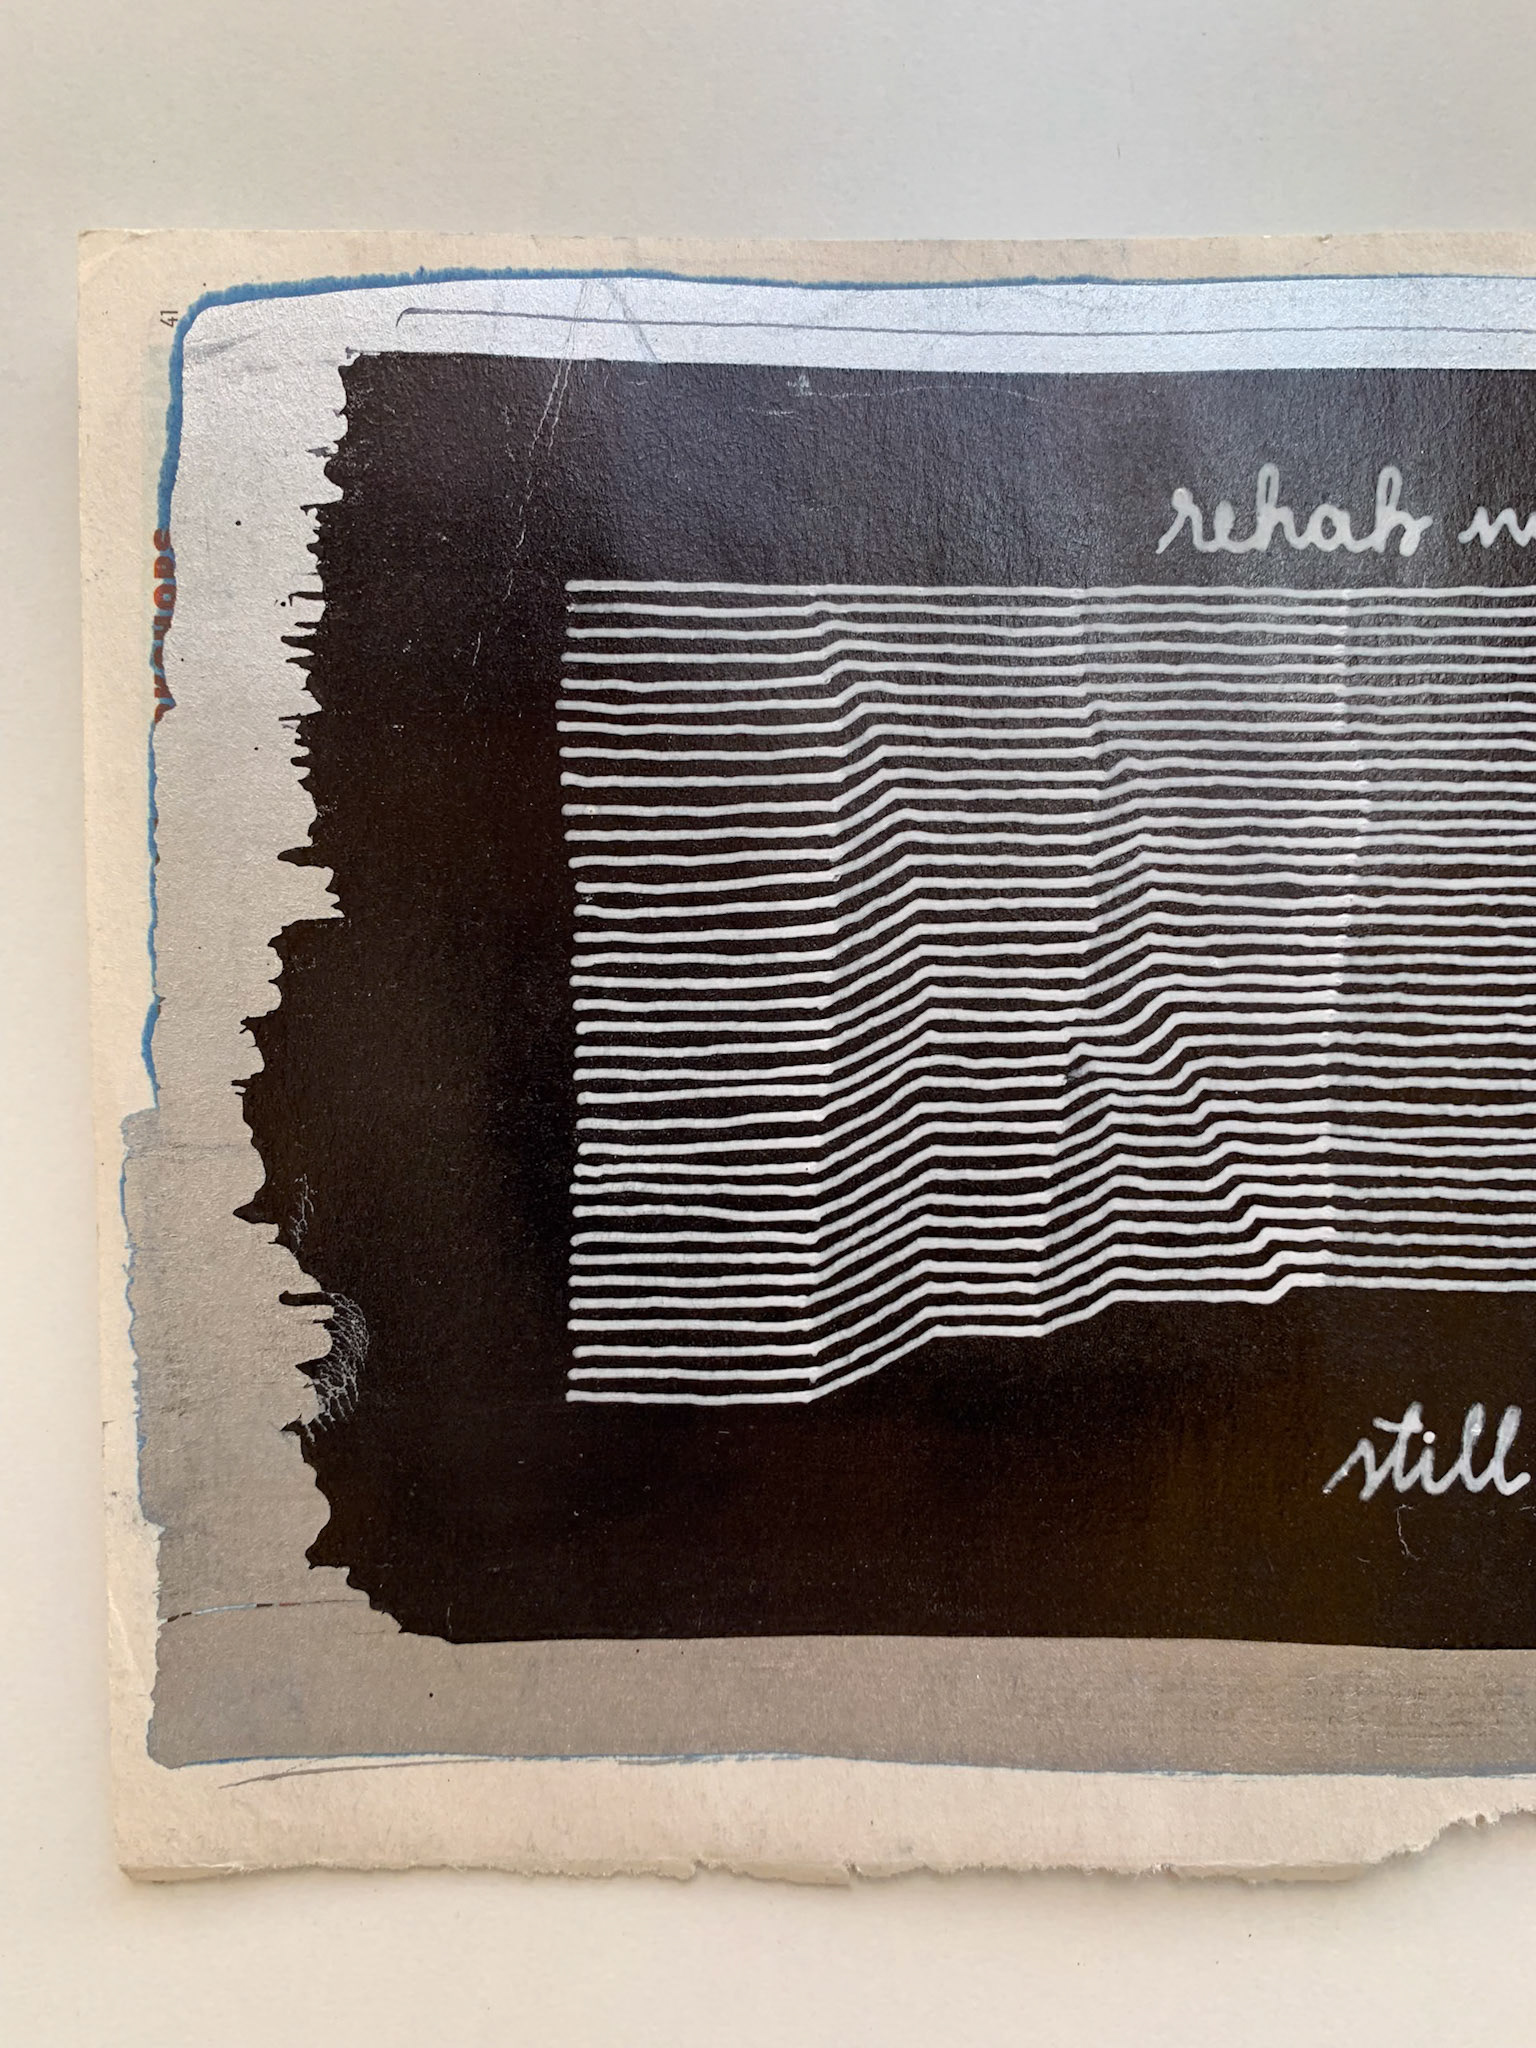 41
rehab
still